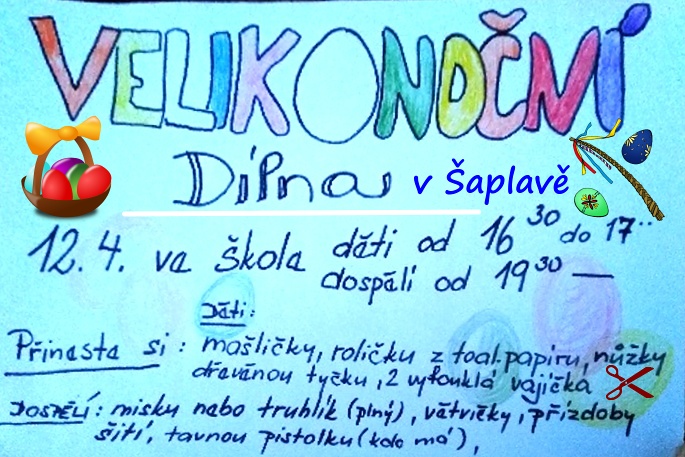 VELIKONOČNÍ
Dílna v Šaplavě
12. 4. ve škole děti od 16 30 do 17 ..
dospělí od 19 30 —
Děti:
Přineste si: mašličky, roličku z toal. papíru, nůžky
dřevěnou tyčku, 2 vyfouklá vajíčka
DOSPĚLÍ: misku nebo truhlík (plný), větvičky, přízdoby
šití, tavnou pistolku (kdo má),